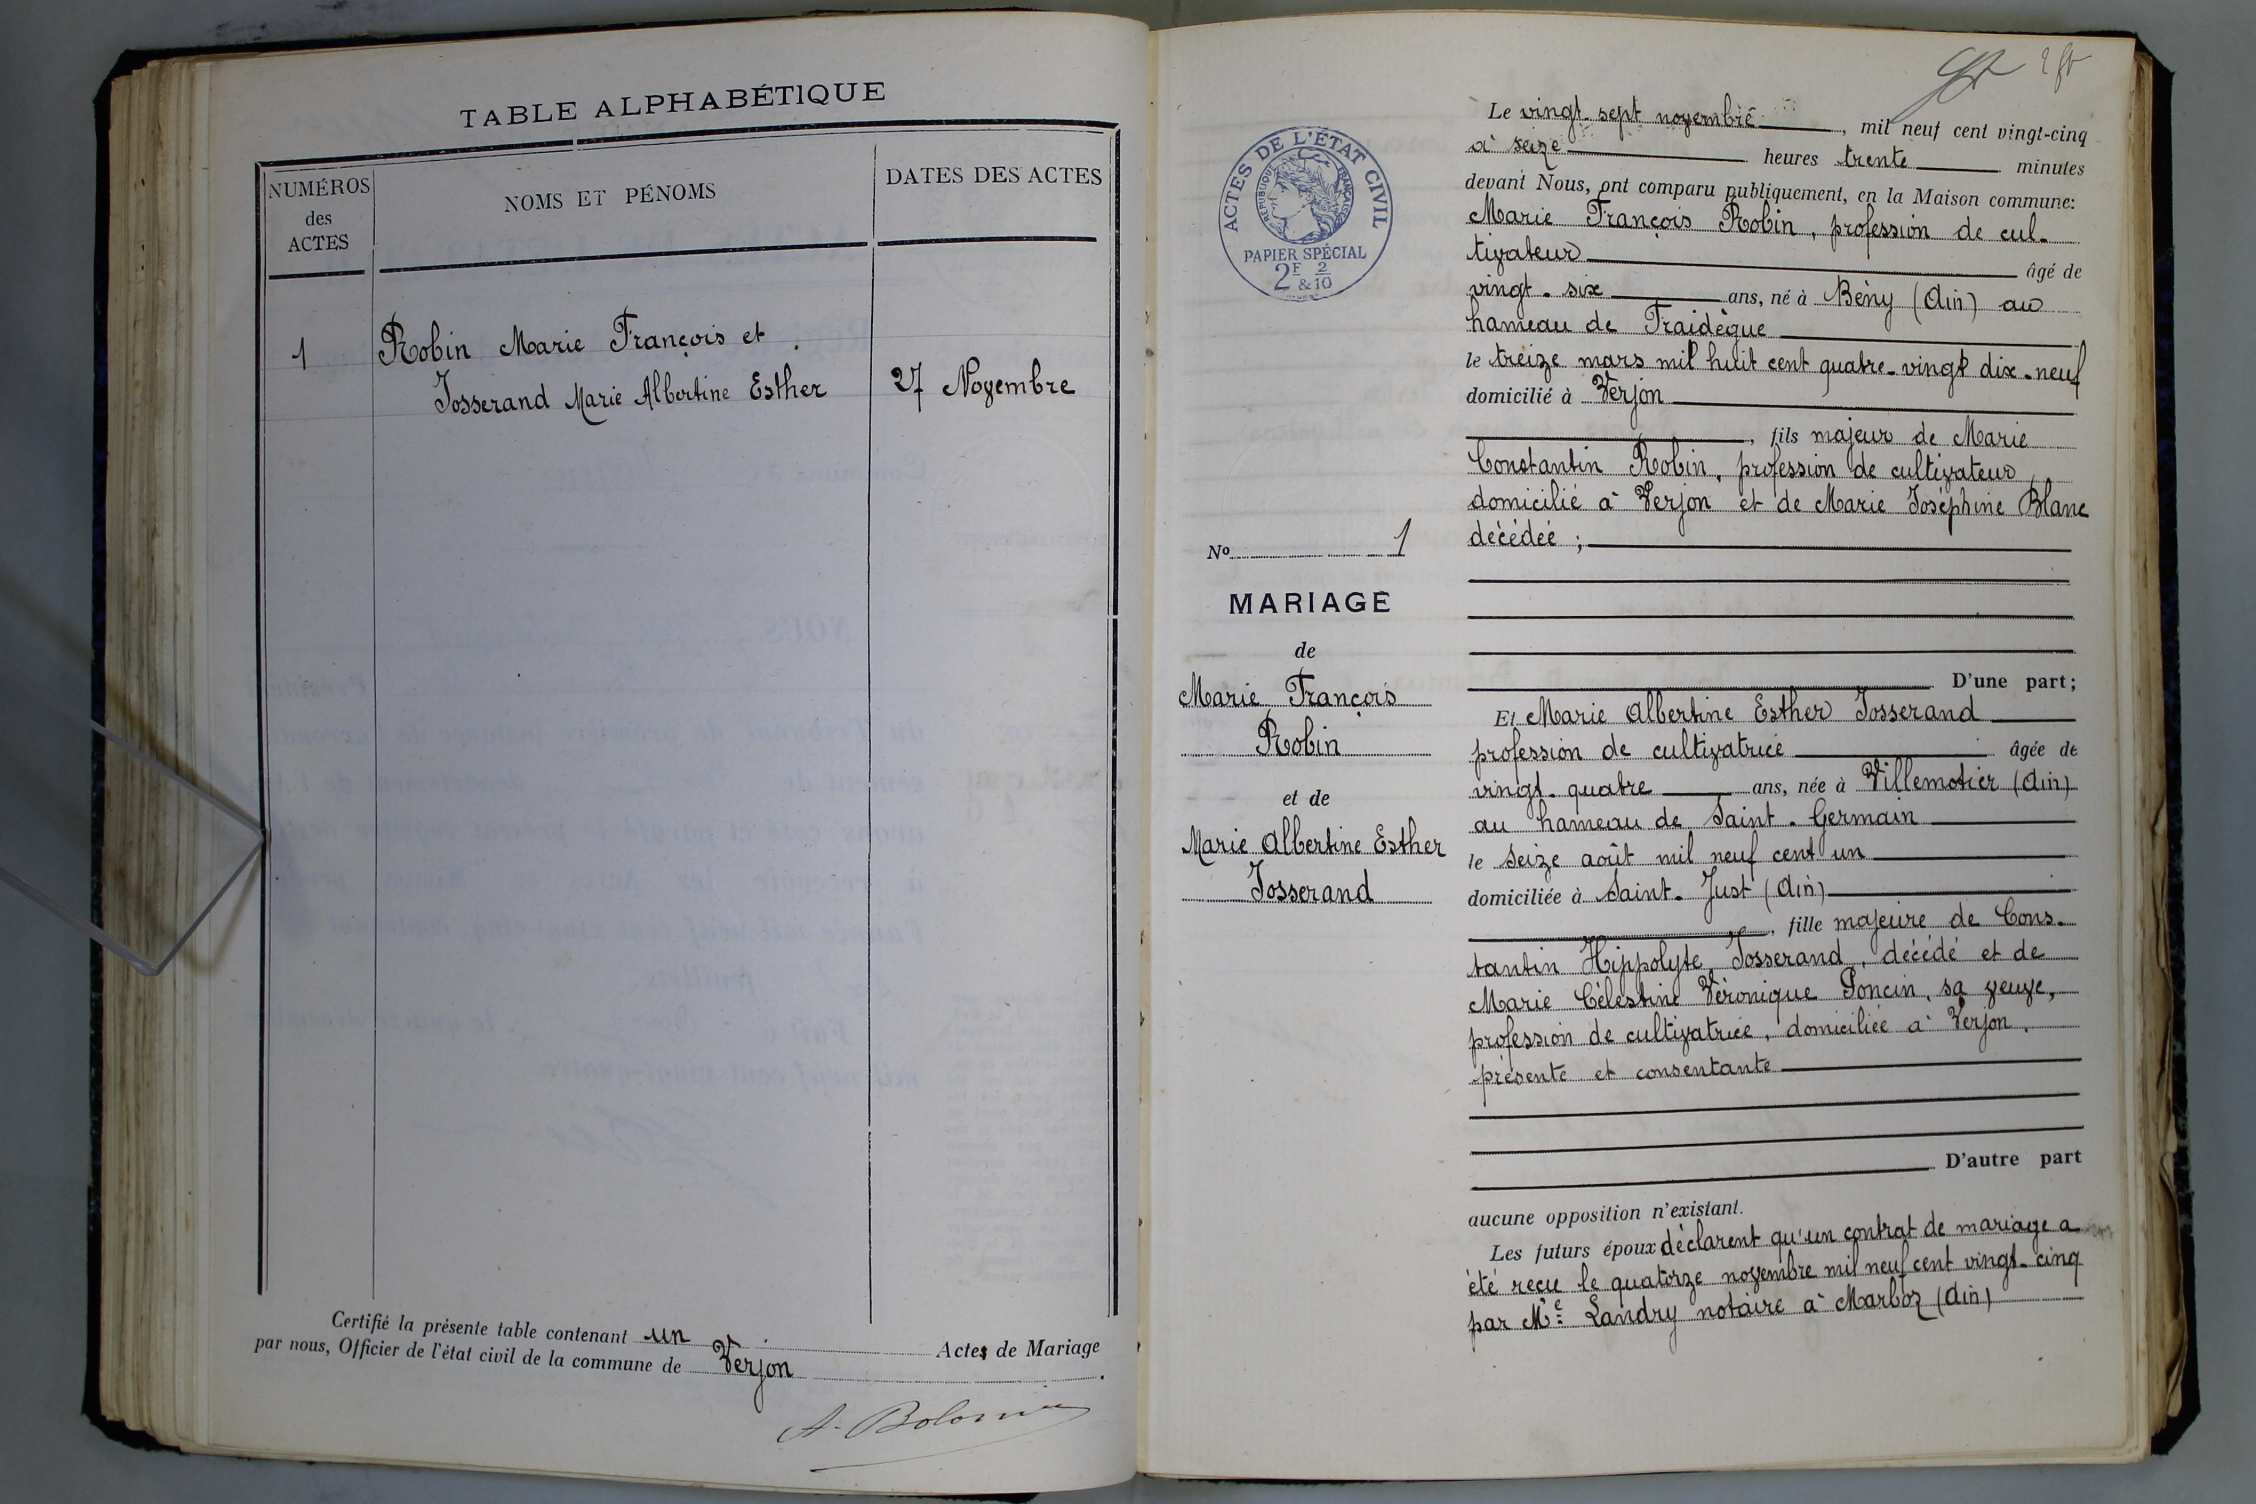 TABLE ALPHABÉTIQUE
NUMÉROS
des
ACTES
NOMS ET PÉNOMS
DATES DES ACTES
1
Robin Marie François et
Josserand Marie Albertine Esther
27 Novembre
Certifié la présente table contenant un Actes de Mariage
par nous, Officier de l'état civil de la commune de Verjon.
ACTES DE L'ÉTAT CIVIL
RÉPUBLIQUE FRANÇAISE
PAPIER SPÉCIAL
2F & 2/10
No 1
MARIAGE
de
Marie François
Robin
et de
Marie Albertine Esther
Josserand
Le vingt-sept novembre, mil neuf cent vingt-cinq
à seize heures trente minutes
devant Nous, ont comparu publiquement, en la Maison commune:
Marie François Robin, profession de cul-
tivateur âgé de
vingt-six ans, né à Bény (Ain) au
hameau de Fraidègue
le treize mars mil huit cent quatre-vingt dix-neuf
domicilié à Verjon
, fils majeur de Marie
Constantin Robin, profession de cultivateur
domicilié à Verjon et de Marie Joséphine Blanc
décédée;
D'une part;
Et Marie Albertine Esther Josserand
profession de cultivatrice âgée de
vingt-quatre ans, née à Villemotier (Ain)
au hameau de Saint-Germain
le seize août mil neuf cent un
domiciliée à Saint-Just (Ain)
, fille majeure de Cons-
tantin Hippolyte Josserand, décédé et de
Marie Célestine Véronique Poncin, sa veuve,
profession de cultivatrice, domiciliée à Verjon,
présente et consentante
D'autre part
aucune opposition n'existant.
Les futurs époux déclarent qu'un contrat de mariage a
été reçu le quatorze novembre mil neuf cent vingt-cinq
par Me Landry notaire à Marboz (Ain)